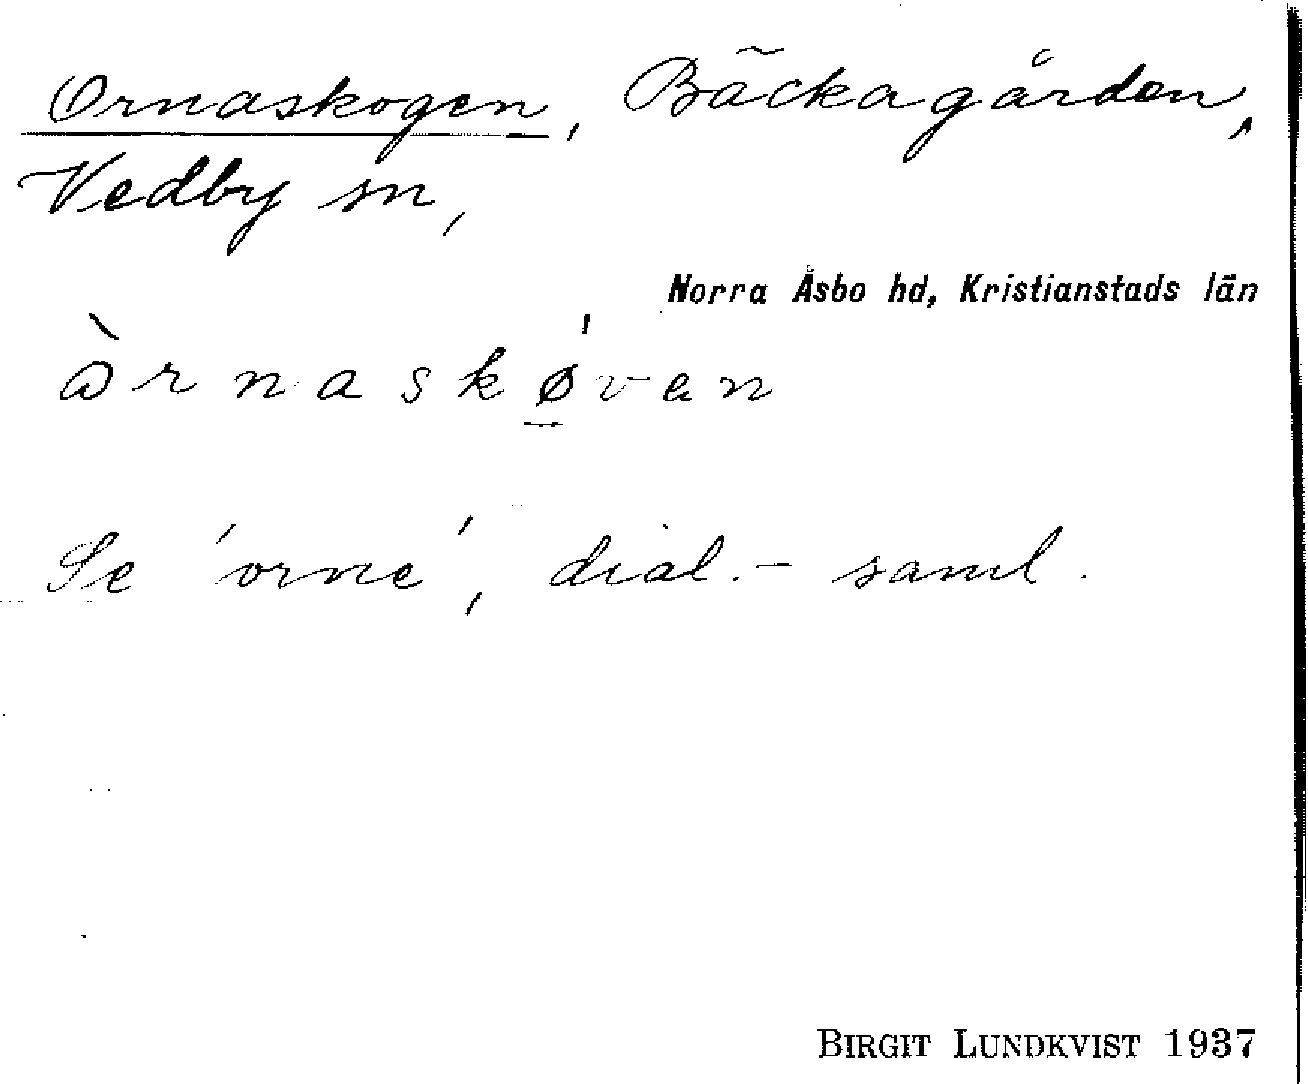 Ornaskogen, Bäckagården,
Vedby sn,
Norra Åsbo hd, Kristianstads län
ɷ̀rnaskǿ̲van
Se 'orne', dial.-saml.
BIRGIT LUNDKVIST 1937